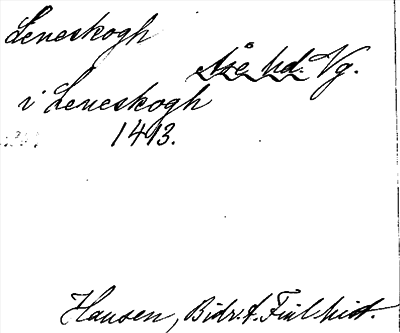 Leneskogh
Åse hd. Vg.
i Leneskogh
1493.
Hausen, Bidr. t. Finl hist.